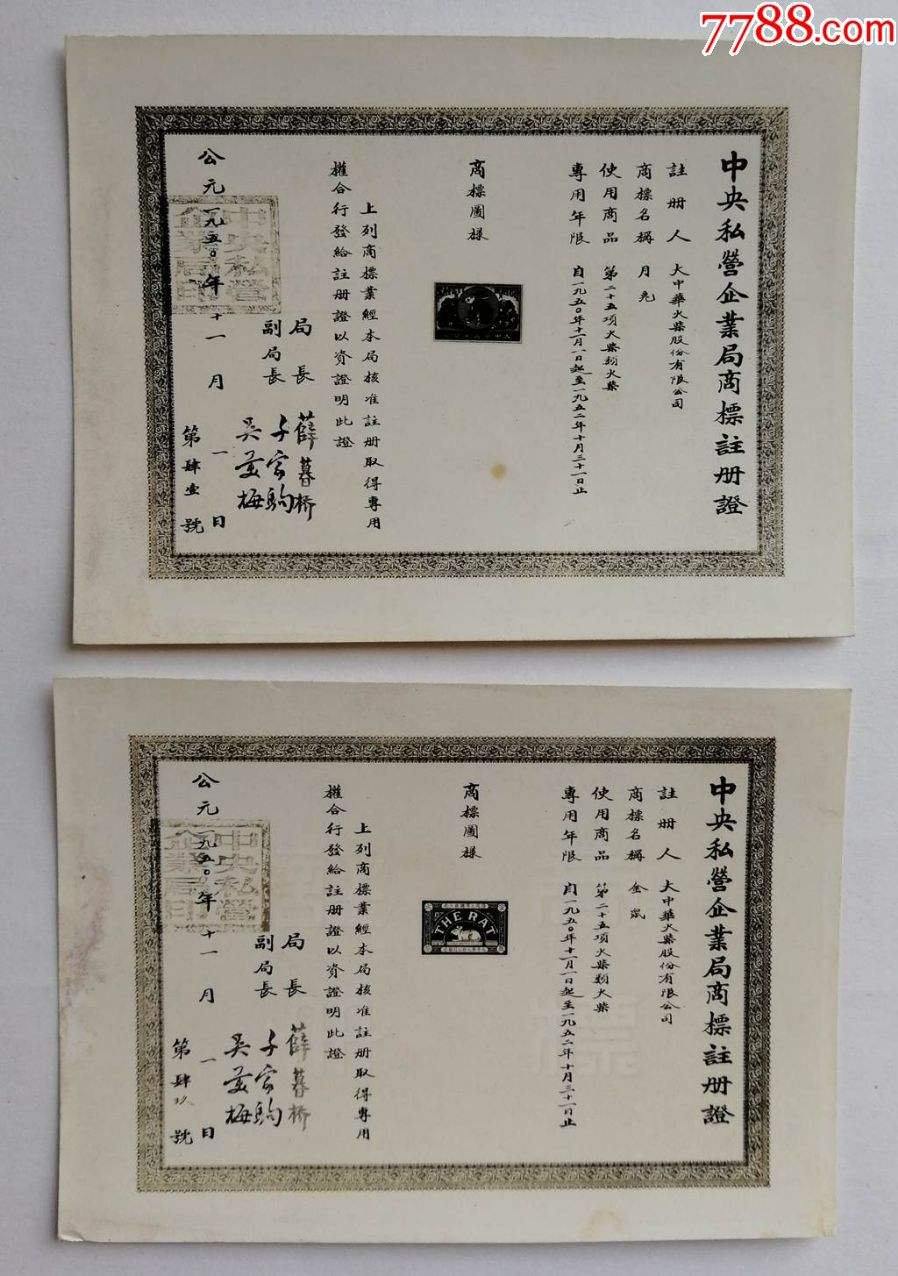 7788.com
中央私營企業局商標註册證
註册人 大中華火柴股份有限公司
商標名稱 月兎
使用商品 第二十五項火柴類火柴
專用年限 自一九五〇年十一月一日起至一九五二年十月三十一日止
商標圖樣
上列商標業經本局核准註册取得專用
權合行發給註册證以資證明此證
局長 薛暮桥
副局長 千家駒
吳羹梅
公元一九五〇年十一月一日
中央私營企業局印
第肆壹號
中央私營企業局商標註册證
註册人 大中華火柴股份有限公司
商標名稱 金鼠
使用商品 第二十五項火柴類火柴
專用年限 自一九五〇年十一月一日起至一九五二年十月三十一日止
商標圖樣
THE RAT
上列商標業經本局核准註册取得專用
權合行發給註册證以資證明此證
局長 薛暮桥
副局長 千家駒
吳羹梅
公元一九五〇年十一月一日
中央私營企業局印
第肆玖號